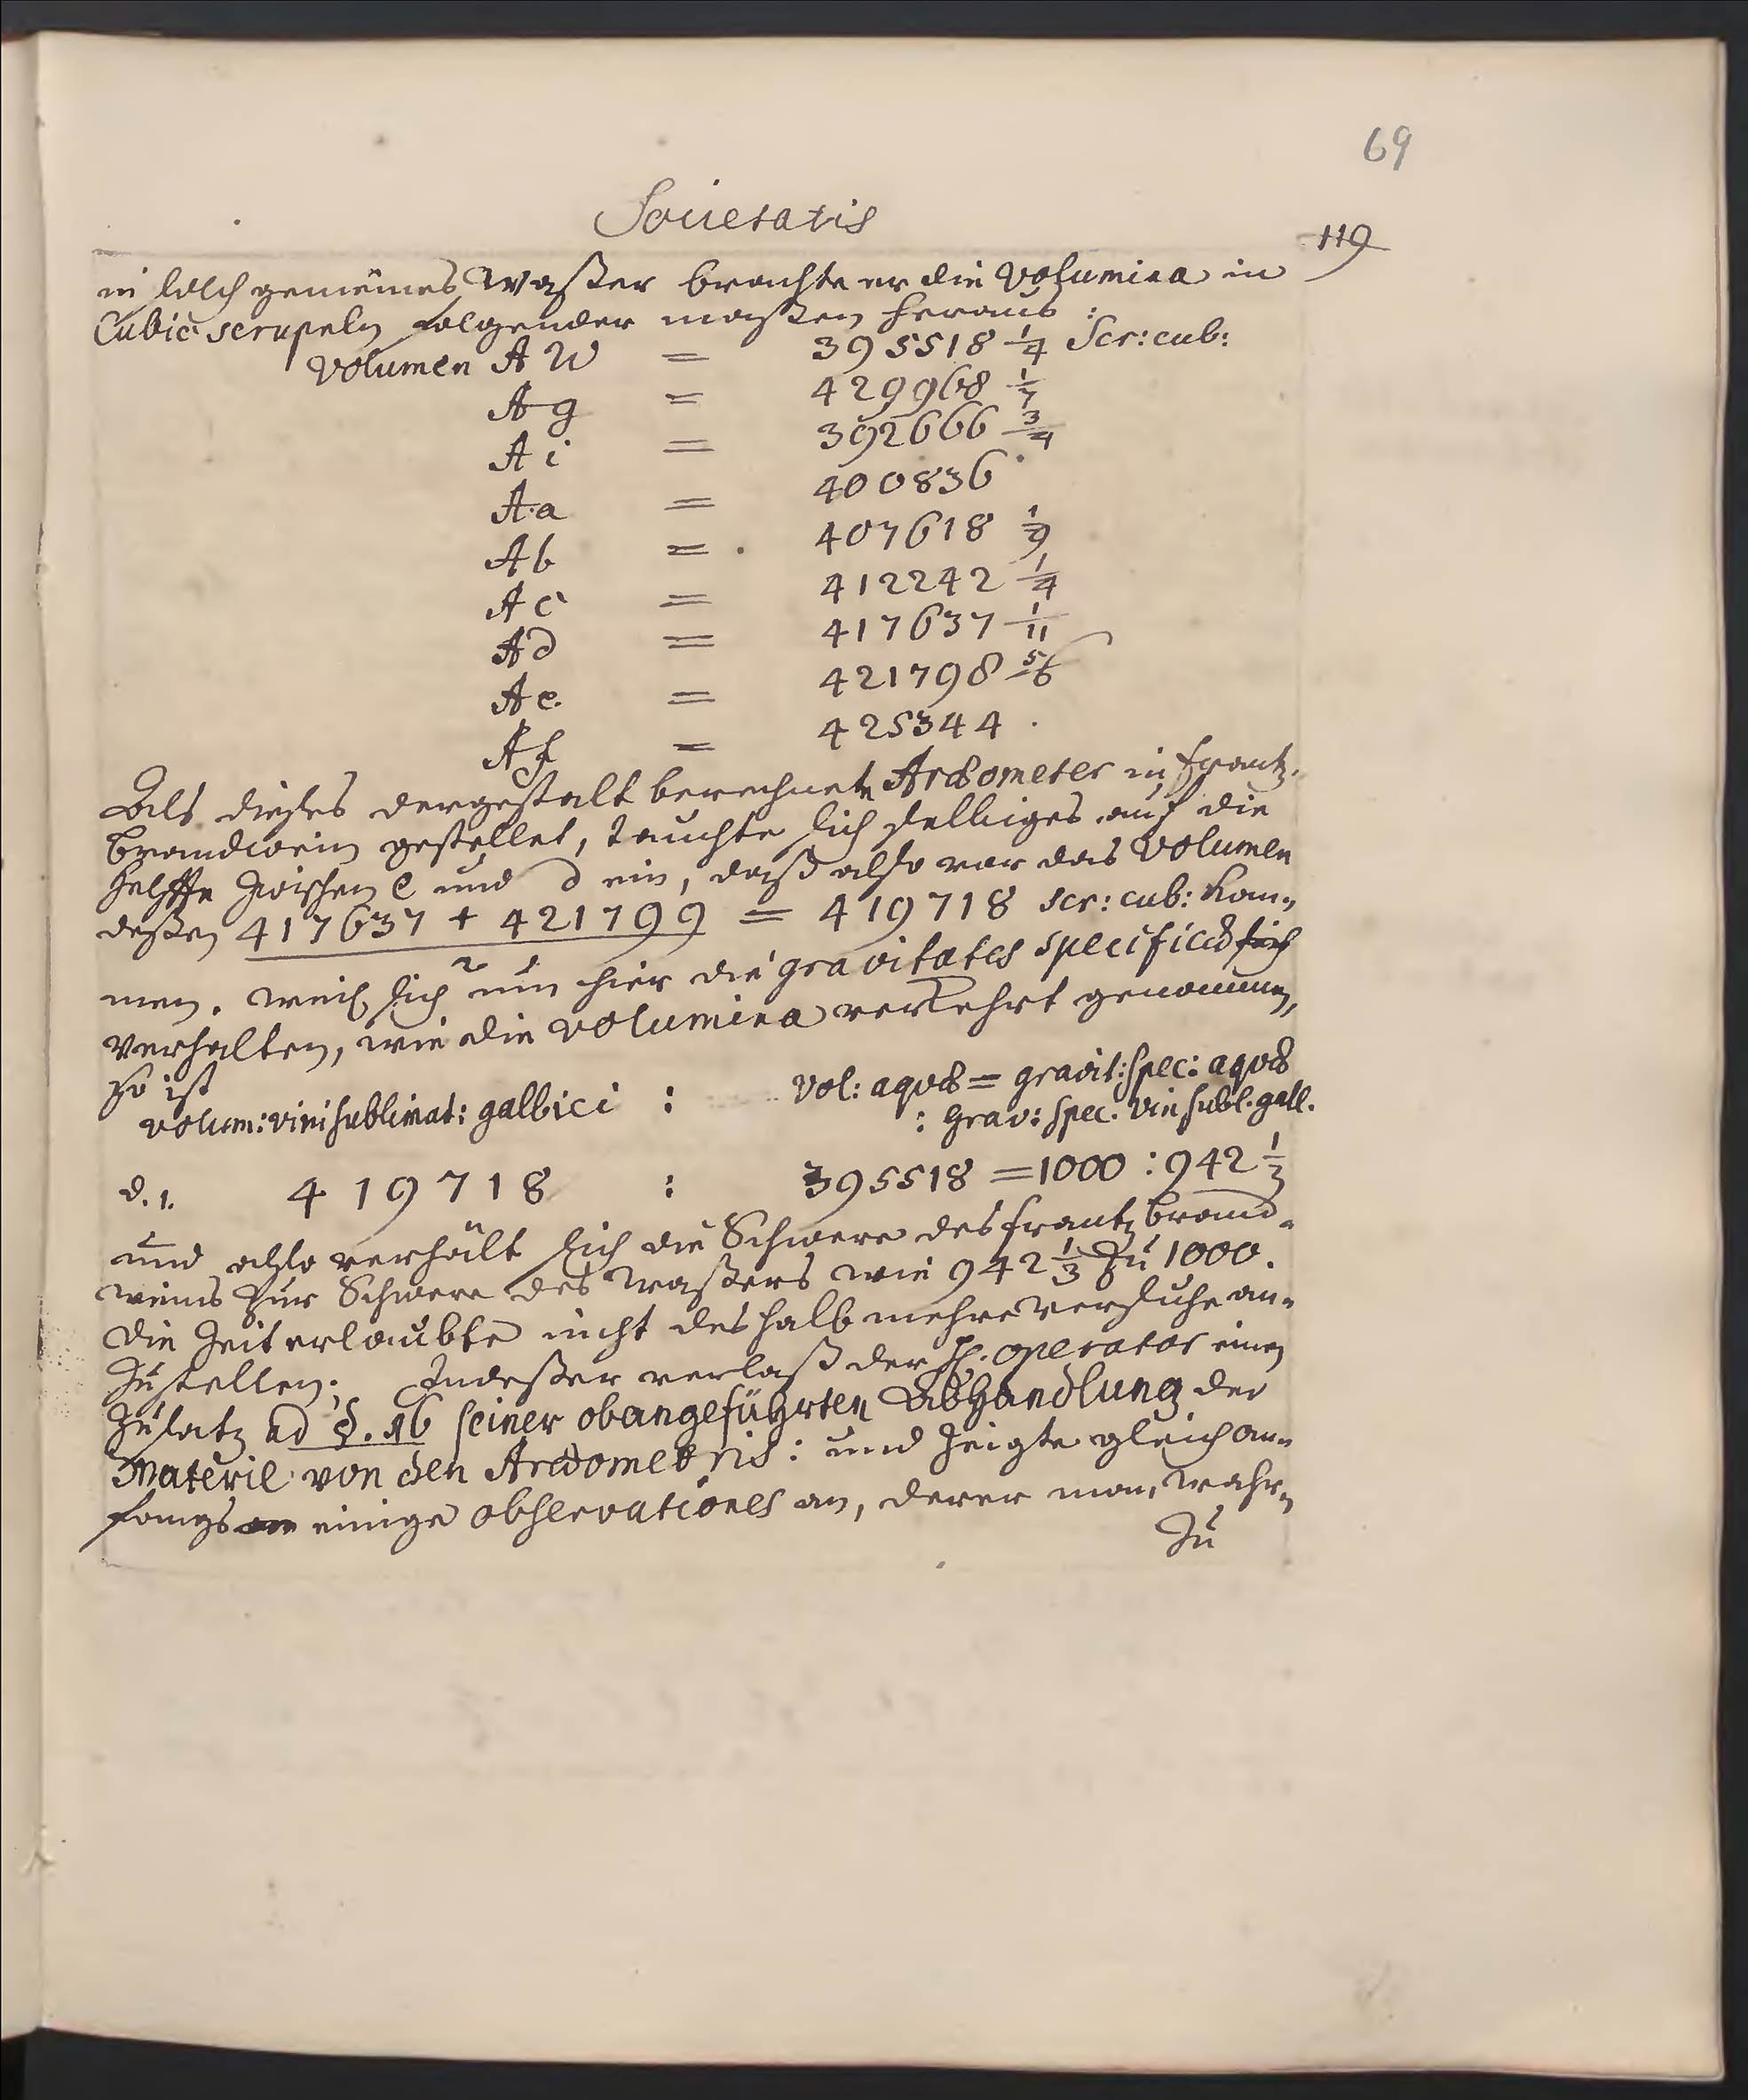 69
Societatis
119
in solch gemeines Waßer brachte er die Volumina in
Cubic scrupeln folgender maßen heraus:
Volumen A W = 395518 1/4 Scr: cub:
A g = 429968 1/7
A i = 392666 3/4
A a = 400836
A b = 407618 1/9
A c = 412242 1/4
A d = 417637 1/11
A e. = 421798 5/6
A f = 425344.
Als dieses dergestalt berechnete Aræometer in frantz.
brandwein gestellet, tauchte sich selbiges auf die
helffte zwischen e und d ein, daß also war das Volumen
deßen 417637 + 421799 = 419718 scr: cub: Kom-
2
men. weil sich nun hier die gravitates specificæ sich
verhalten, wie die volumina verkehrt genommen,
so ist
volum: vini sublimat: gallici : Vol: aquæ = gravit: spec: aquæ
: grav: spec. vin subl. gall.
d. i. 419718 : 395518 = 1000 : 942 1/3
und also verhält sich die Schwere des frantz brand-
weins zur Schwere des Waßers wie 942 1/3 zu 1000.
Die Zeit erlaubte nicht deshalb mehre versuche an-
zustellen; Indeßen verlaß der H. operator einen
Zusatz ad §. 16 seiner obangeführten Abhandlung der
Materie von den Aræometris: und zeigte gleich an-
fangs an einige observationes an, derer man, wahr-
zu